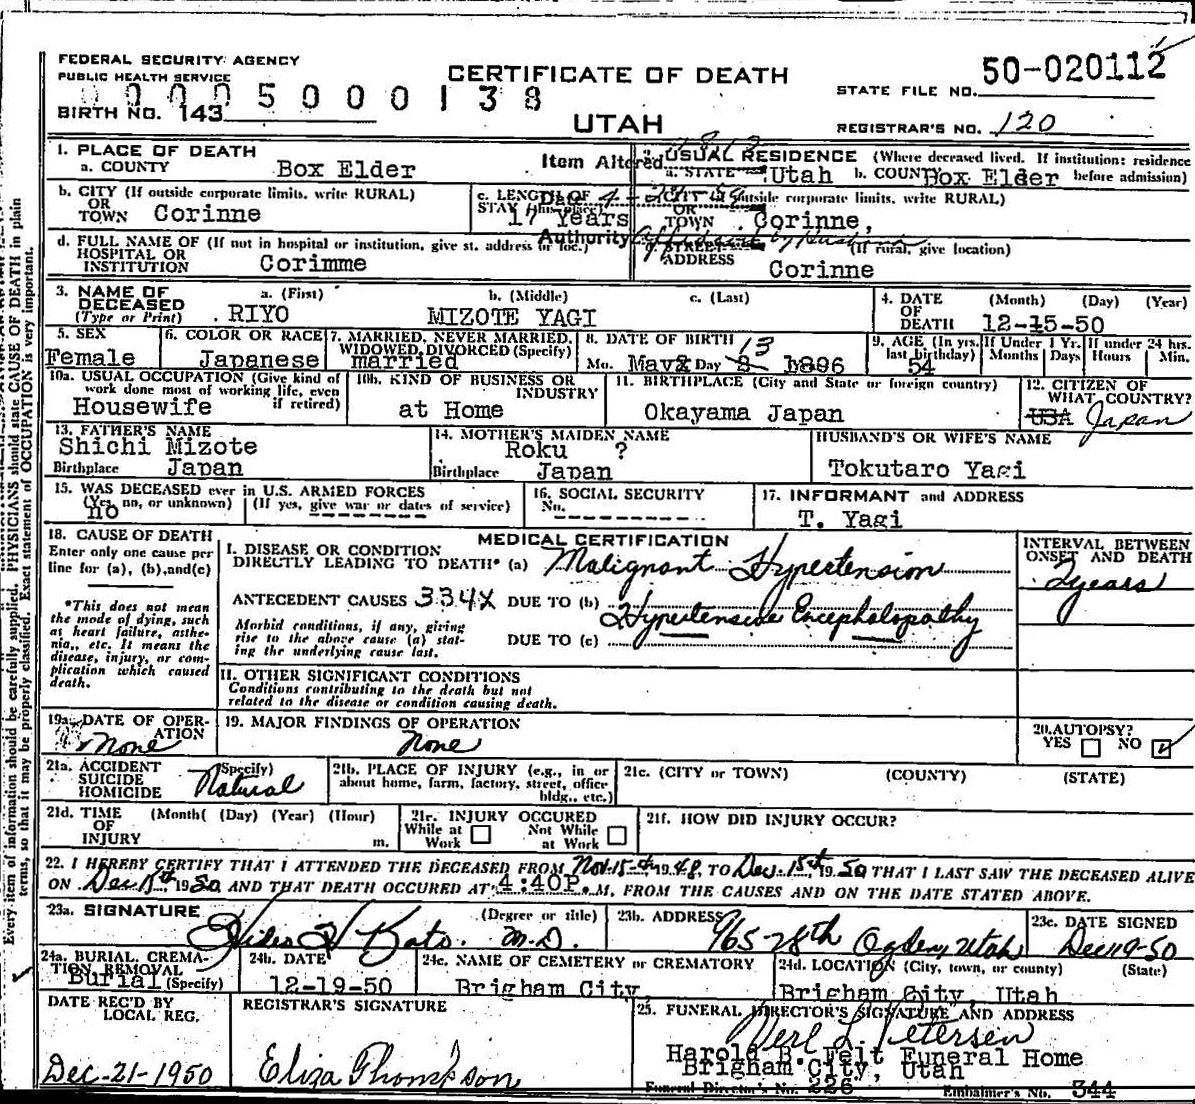 FEDERAL SECURITY AGENCY
PUBLIC HEALTH SERVICE
CERTIFICATE OF DEATH
50-020112
STATE FILE NO.
0005000138
BIRTH NO. 143
UTAH
REGISTRAR'S NO. 120
1. PLACE OF DEATH
a. COUNTY Box Elder
Item Altered
2. USUAL RESIDENCE (Where deceased lived. If institution: residence before admission)
a. STATE Utah b. COUNTY Box Elder
b. CITY (If outside corporate limits, write RURAL)
OR
TOWN Corinne
c. LENGTH OF
STAY (in this place)
17 Years
Date
c. CITY (If outside corporate limits, write RURAL)
OR
TOWN Corinne,
d. FULL NAME OF (If not in hospital or institution, give st. address or loc.)
HOSPITAL OR
INSTITUTION Corimme
Authority
STREET (If rural, give location)
ADDRESS
Corinne
3. NAME OF
DECEASED
(Type or Print)
a. (First) b. (Middle) c. (Last)
RIYO MIZOTE YAGI
4. DATE
OF
DEATH
(Month) (Day) (Year)
12-15-50
5. SEX
Female
6. COLOR OR RACE
Japanese
7. MARRIED, NEVER MARRIED,
WIDOWED, DIVORCED (Specify)
married
8. DATE OF BIRTH 13
Mo. May Day 1896
9. AGE (In yrs. last birthday)
54
If Under 1 Yr.
Months Days
If under 24 hrs.
Hours Min.
10a. USUAL OCCUPATION (Give kind of
work done most of working life, even
if retired)
Housewife
10b. KIND OF BUSINESS OR
INDUSTRY
at Home
11. BIRTHPLACE (City and State or foreign country)
Okayama Japan
12. CITIZEN OF
WHAT COUNTRY?
USA Japan
13. FATHER'S NAME
Shichi Mizote
Birthplace Japan
14. MOTHER'S MAIDEN NAME
Roku ?
Birthplace Japan
HUSBAND'S OR WIFE'S NAME
Tokutaro Yagi
15. WAS DECEASED ever in U.S. ARMED FORCES
(Yes, no, or unknown) (If yes, give war or dates of service)
no
16. SOCIAL SECURITY
No.
17. INFORMANT and ADDRESS
T. Yagi
18. CAUSE OF DEATH
Enter only one cause per
line for (a), (b), and (c)
*This does not mean
the mode of dying, such
as heart failure, asthe-
nia, etc. It means the
disease, injury, or com-
plication which caused
death.
MEDICAL CERTIFICATION
I. DISEASE OR CONDITION
DIRECTLY LEADING TO DEATH* (a) Malignant Hypertension
ANTECEDENT CAUSES 334X DUE TO (b)
Hypertensive Encephalopathy
Morbid conditions, if any, giving
rise to the above cause (a) stat-
ing the underlying cause last.
DUE TO (c)
II. OTHER SIGNIFICANT CONDITIONS
Conditions contributing to the death but not
related to the disease or condition causing death.
INTERVAL BETWEEN
ONSET AND DEATH
2 years
19a. DATE OF OPER-
ATION
None
19. MAJOR FINDINGS OF OPERATION
None
20. AUTOPSY?
YES NO
21a. ACCIDENT
SUICIDE
HOMICIDE
(Specify)
Natural
21b. PLACE OF INJURY (e.g., in or
about home, farm, factory, street, office
bldg., etc.)
21c. (CITY or TOWN) (COUNTY) (STATE)
21d. TIME
OF
INJURY
(Month( (Day) (Year) (Hour)
m.
21e. INJURY OCCURED
While at Work
Not While at Work
21f. HOW DID INJURY OCCUR?
22. I HEREBY CERTIFY THAT I ATTENDED THE DECEASED FROM Nov. 15th 1948, TO Dec. 15th, 1950 THAT I LAST SAW THE DECEASED ALIVE
ON Dec 15th 1950 AND THAT DEATH OCCURED AT 4:40P. M, FROM THE CAUSES AND ON THE DATE STATED ABOVE.
23a. SIGNATURE (Degree or title)
Kato. M.D.
23b. ADDRESS
965-28th Ogden, Utah
23c. DATE SIGNED
Dec 19-50
24a. BURIAL, CREMA-
TION, REMOVAL
Burial (Specify)
24b. DATE
12-19-50
24c. NAME OF CEMETERY or CREMATORY
Brigham City
24d. LOCATION (City, town, or county) (State)
Brigham City, Utah
DATE REC'D BY
LOCAL REG.
Dec-21-1950
REGISTRAR'S SIGNATURE
Eliza Thompson
25. FUNERAL DIRECTOR'S SIGNATURE AND ADDRESS
Verl L. Petersen
Harold B. Felt Funeral Home
Brigham City, Utah
Funeral Director's No. 226 Embalmer's No. 344
Every item of information should be carefully supplied. PHYSICIANS should state CAUSE OF DEATH in plain
terms, so that it may be properly classified. Exact statement of OCCUPATION is very important.